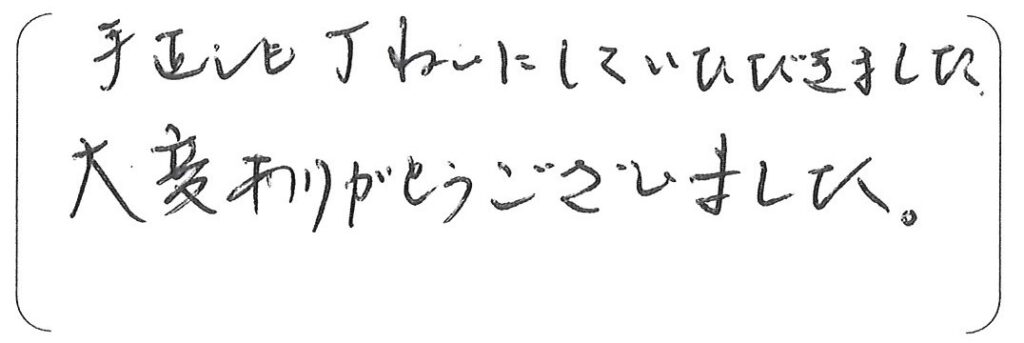 手直しも丁ねいにしていただきました
大変ありがとうございました。